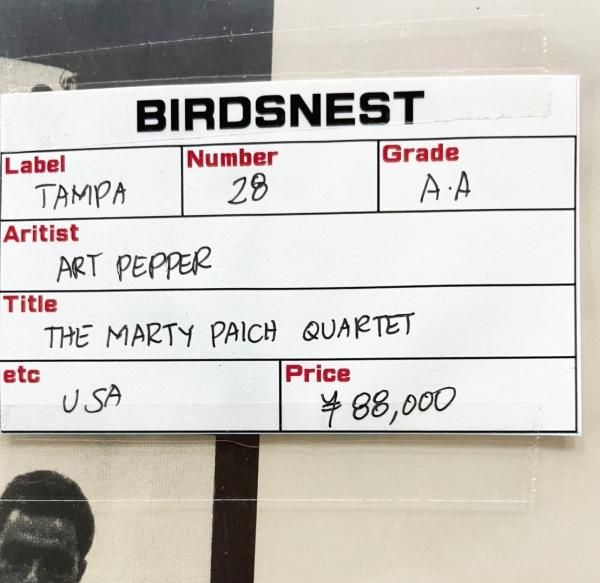 BIRDSNEST
Label Number Grade
TAMPA 28 A·A
Aritist
ART PEPPER
Title
THE MARTY PAICH QUARTET
etc Price
USA ¥88,000